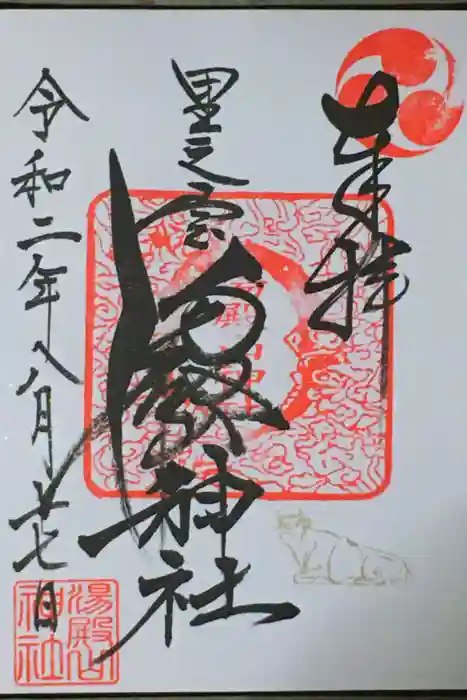 奉拝
里之宮
湯殿山神社
令和二年八月十七日
湯殿山
神社